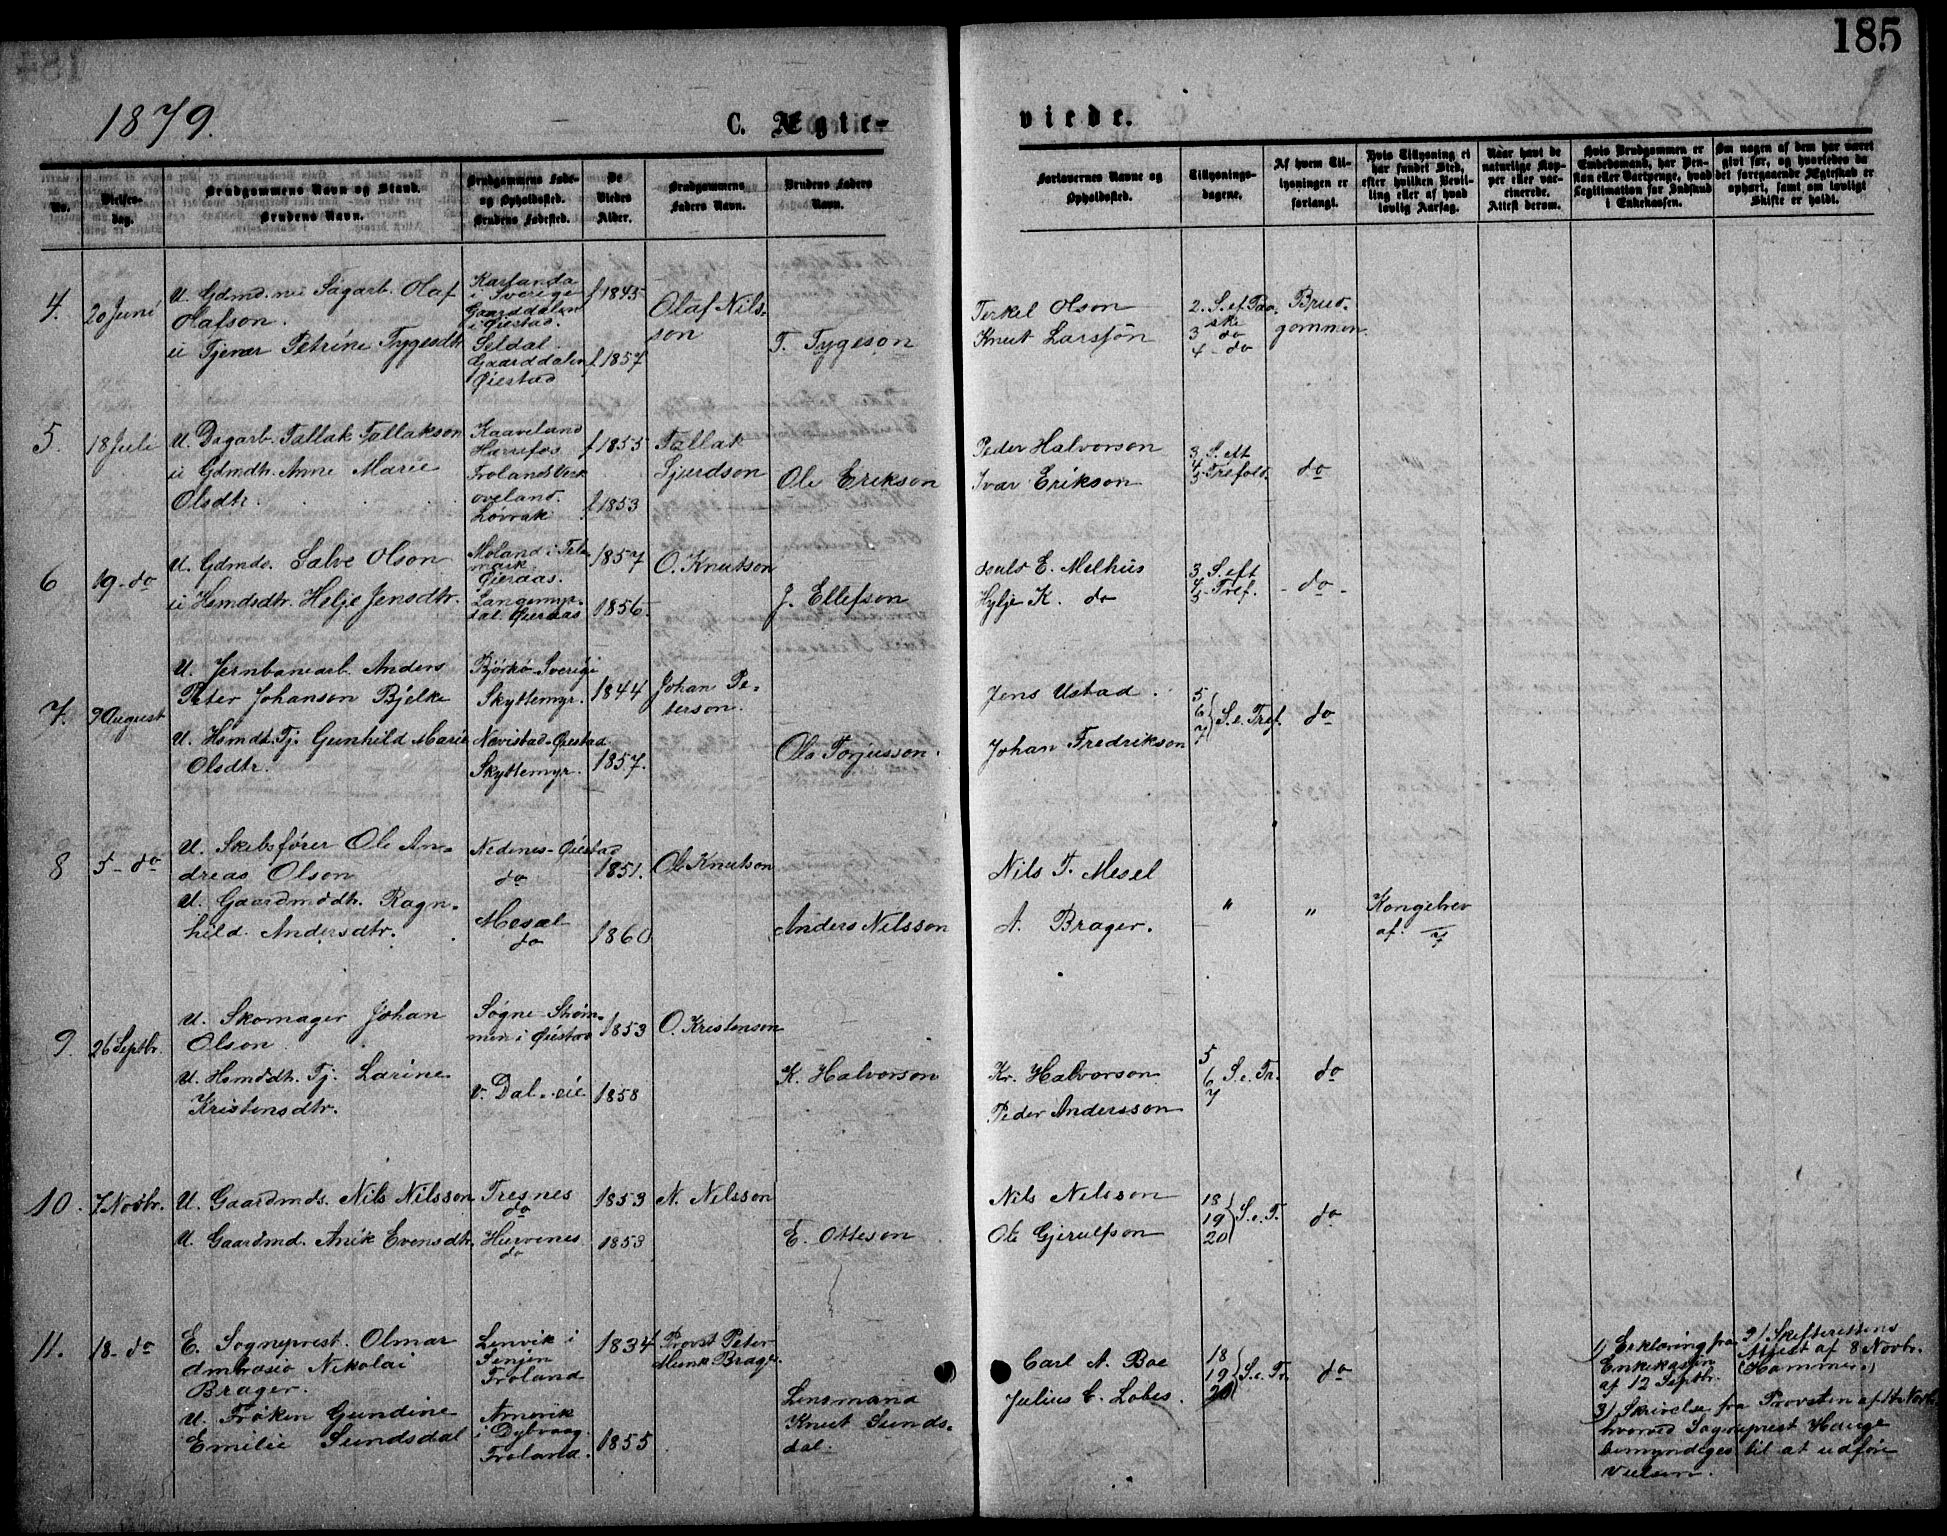 185
1879.
C. Ægte-
viede.
No.
Vielses-
dag.
Brudgommens Navn og Stand.
Brudens Navn.
Brudgommens Føde-
og Opholdssted.
Brudens Fødested.
De
Viedes
Alder.
Brudgommens
Faders Navn.
Brudens Faders
Navn.
Forlovernes Navne og
Opholdssted.
Tillysnings-
dagene.
Af hvem Til-
lysningen er
forlangt.
Hvis Tillysning ei
har fundet Sted,
efter hvilken Bevil-
ling eller af hvad
lovlig Aarsag.
Naar havt de
naturlige Kop-
per eller vac-
cinerede.
Attest derom.
Hvis Brudgommen er
Embedsmand, har Pen-
sion eller Vartpenge, hvad
Legitimation for Indskud
i Enkekassen.
Om nogen af dem har været
gift før, og hvorledes da
det foregaaende Ægteskab er
ophørt, samt om lovligt
Skifte er holdt.
4.
20 Juni
U. Gdmd. Sagarb. Olaf
Olafson.
u Tjener Petrine Tygesdtr.
Karlanda
i Sverige
Gaarddalen
i Øiestad.
Seldal.
Gaarddalen
Øiestad
f 1845
f 1857
Olaf Nils-
son
T. Tygeson
Terkel Olson
Knut Larssøn
2. S. ef Paa-
ske
3 do
4 - do
Brud-
gommen
5
18 Juli
U. Dagarb. Tallak Tallakson
u Gdmdtr. Anne Marie
Olsdtr.
Kaaveland
Hurrefos
Frolands Verk
oveland.
Løvrak
f 1855
f 1853
Tallak
Sjurdson
Ole Erikson
Peder Halvorson
Ivar Erikson
3. S. eft
4
5 Trefold.
do
6
19 - do
U. Gdmds. Salve Olson
u Hsmdsdtr. Helje Jensdtr.
Moland i Tele-
mark.
Øieraas.
Langemyr-
dal. Øieraas
1857
1856.
O. Knutson
J. Ellefson
E. Melhus
Hylje K. do
3. S. eft
4
5 Tref.
- do -
7.
9 August
U. Jernbanearb. Anders
Peter Johanson Bjelke
U. Hsmdt. Tj. Gunhild Marie
Olsdtr.
Bjørkø Sverige
Skyttemyr.
Nævistad - Øiestad
Skyttemyr.
1844
1857.
Johan Pe-
terson.
Ola Torjusson.
Jens Ustad.
Johan Fredrikson
5
6
7
S. e. Tref.
do
8
5 - do
U. Skibsfører Ole An-
dreas Olson
U. Gaardmddtr. Ragn-
hild. Andersdtr.
Nedenes - Øiestad
do
Mesel
do
1851.
1860
Ole Knutson
Anders Nilsson
Nils T. Mesel
A. Brager.
"
"
Kongebrev
af. — 7
9.
26 Septbr.
U. Skomager Johan
Olson.
U. Hsmddtr. Tj. Larine
Kristensdtr.
Søgne - Strøm-
men i Øiestad
v. Dal. eie
1853
1858
O. Kristenson
K. Halvorson
Kr. Halvorson
Peder Andersson
5
6
7
S. e. Tr.
do
10.
7 Novbr.
U. Gaardmds. Nils Nilsson
U. Gaardmd. Anik Evensdtr.
Tresnes
do
Hurvenes
do
1853
1853
N. Nilsson
E. Otteson
Nils Nelsson
Ole Gjerulfson
18
19
20
S. e. T.
do
11.
18 - do
E. Sogneprest. Olmar
Ambrosio Nikolai
Brager.
U. Frøken Gundine
Emilie Sundsdal
Lenvik i
Senjen
Froland
Amevik
i Dybvaag.
Froland.
1834
1855.
Provst Peter
Munk Brager.
Lensmand
Knut Sunds-
dal.
Carl A. Boe
Julius C. Lobes.
18
19
20
S. e. Tr.
do
1) Erklæring fra
Enkekassen
af 12 Septbr.
2) Skifterettens
Attest af 8 Novbr.
(Hammer.)
3) Skrivelse fra Provsten af 14 Novbr.
hvorved Sogneprest Hauge
bemyndiges til at udføre
Vielsen.